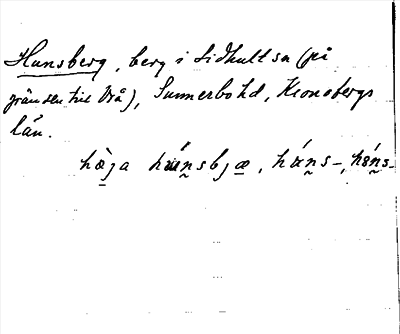 Hunsberg, berg i Lidhult sn (på
gränsen till Vrå), Sunnerbo hd, Kronobergs
län.
hæ̀ja hún̰sbjæ, hún̰s-, hɵ́n̰s-